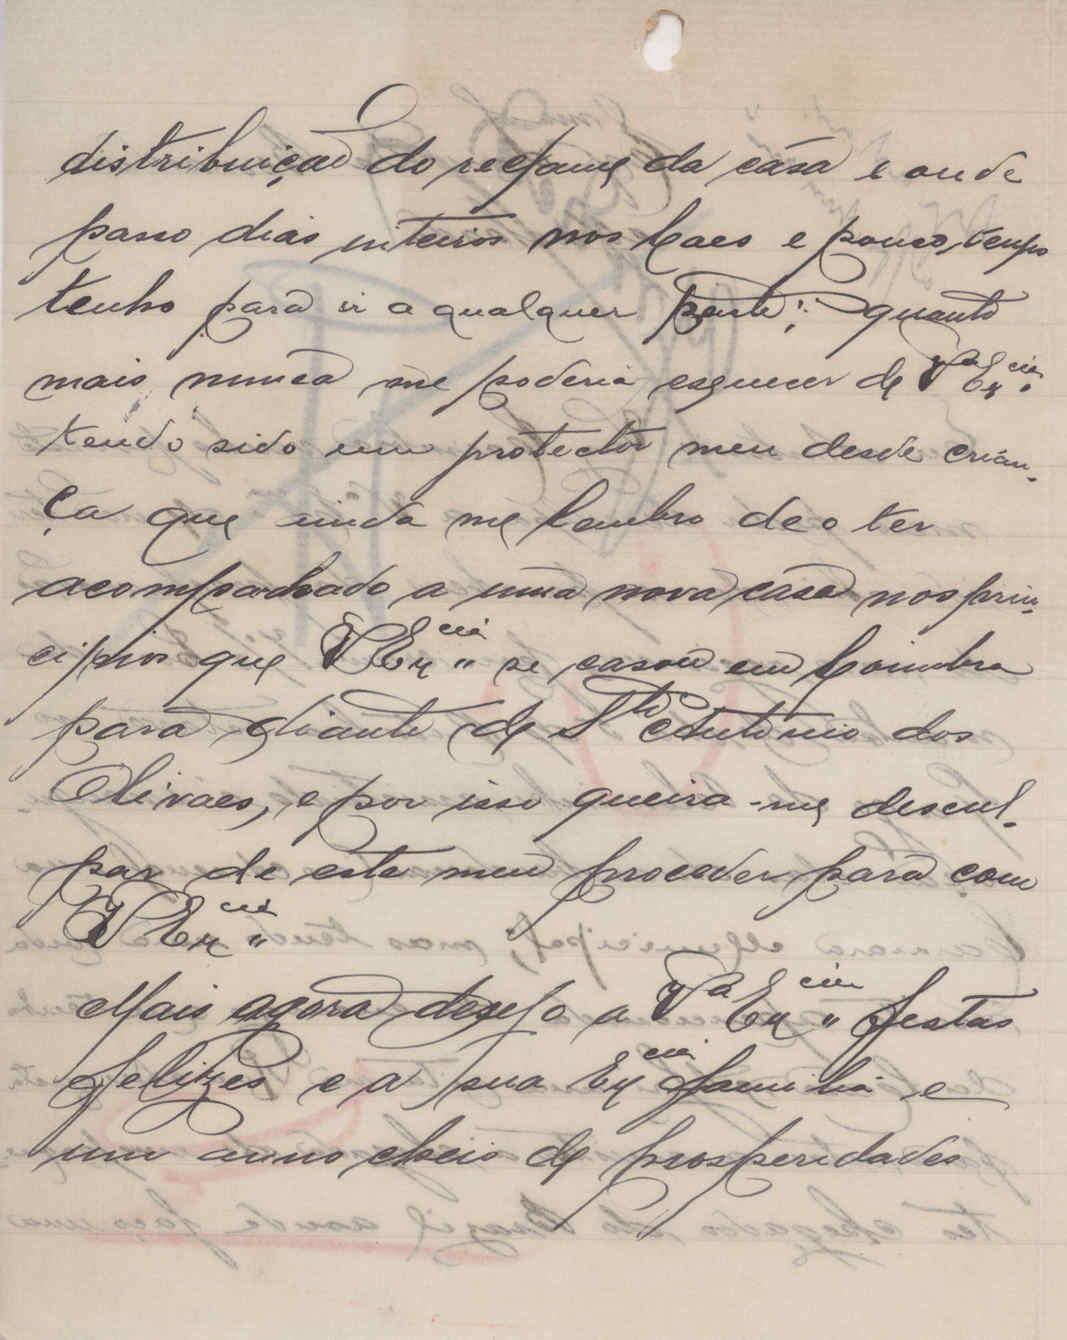 distribuição do reclame da cása e onde
passo dias inteiros nos Caes e pouco, tempo
tenho para ir a qualquer parte; quanto
mais nunca me poderia esquecer de Vª Exciª
tendo sido um protector meu desde crian-
ça que ainda me lembro de o ter
acompanhado a uma nova casa nos prin-
cipios que V Exciª se casou em Coimbra
para diante de Sto Antonio dos
Olivaes, e por isso queira-me descul-
par de este meu proceder para com
V Exciª
Mais agora desejo a Vª Exciª festas
felizes e a sua Exciª familia e
um anno cheio de prosperidades